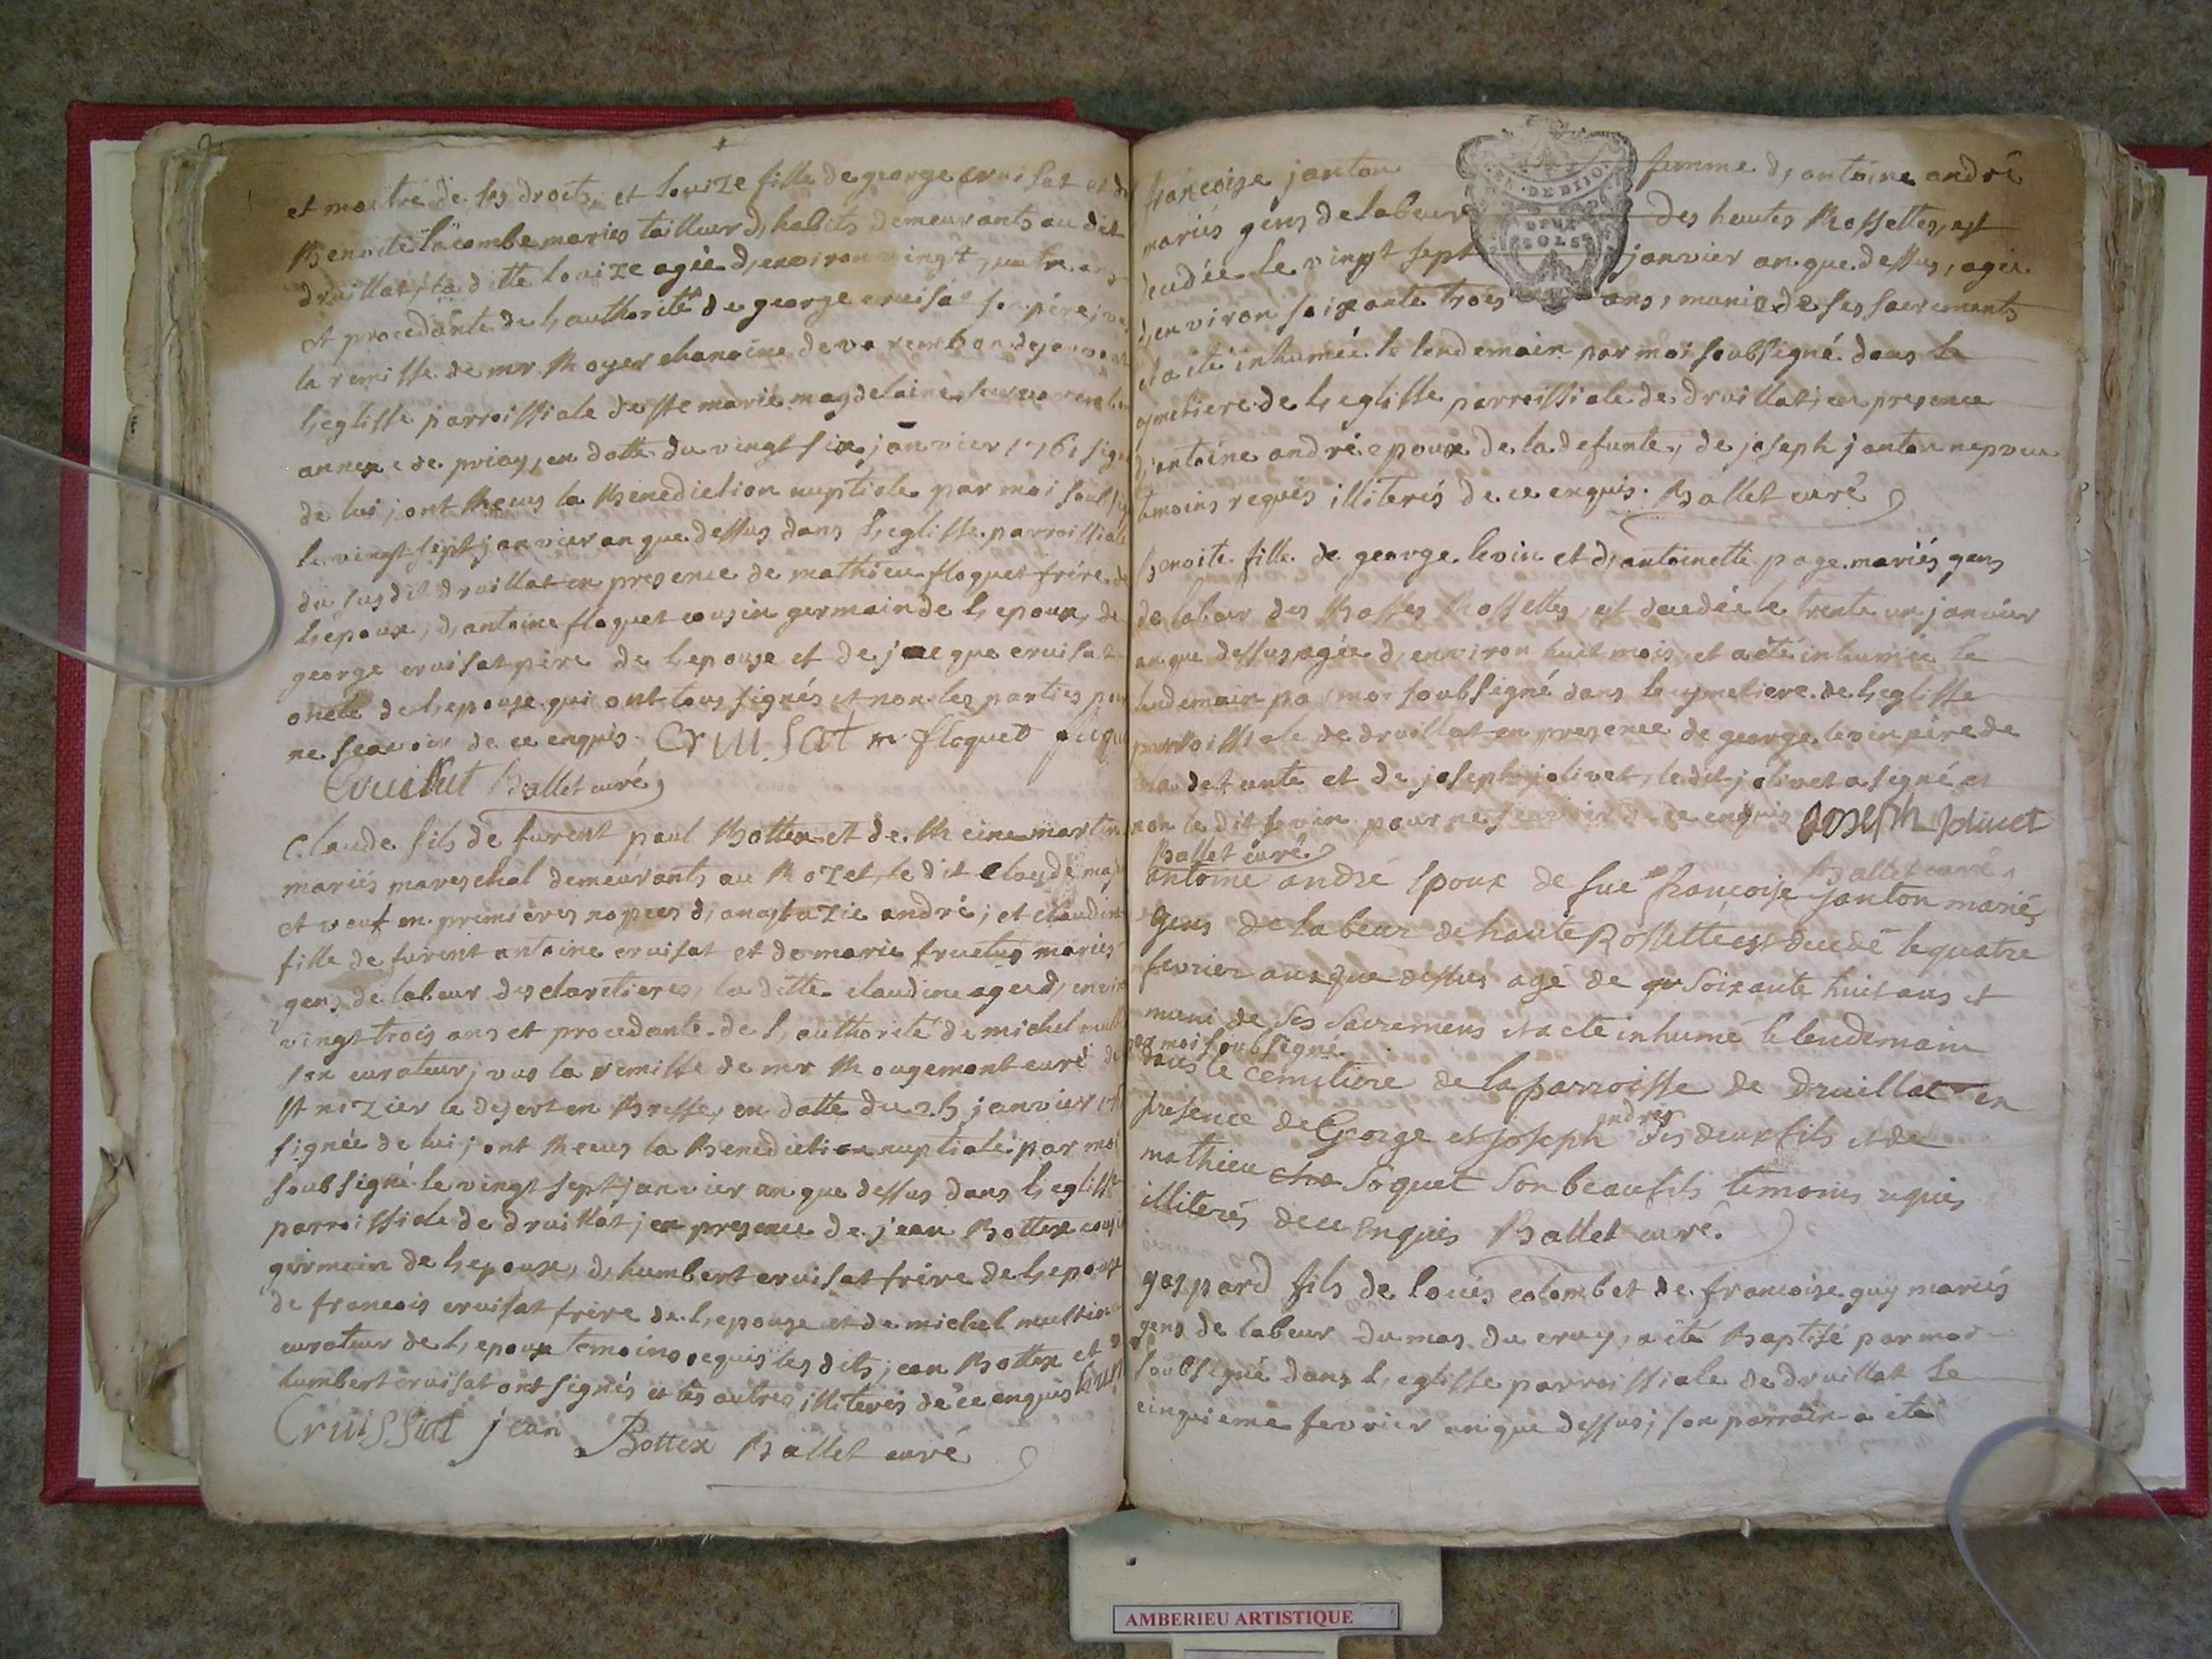 et maitre de ses droits, et louize fille de george cruisat et de
Benoite lacombe mariés tailleur d'habits demeurants au dit
druillat, la ditte louize agée d'environ vingt quatre ans
et procedante de l'authorité de george cruisat son père; vu
la remisse de mr Royer chanoine de varembon
l'eglisse parroissiale de ste marie magdelaine
annexe de priay, en datte du vingt six janvier 1761 signé
de lui; ont Recus la Benediction nuptiale par moi soubsigné
le vingt sept janvier an que dessus dans l'eglisse parroissiale
du susdit druillat en presence de mathieu floquet frère de
l'epoux, d'antoine floquet cousin germain de l'epoux, de
george cruisat père de l'epouse et de jacque cruisat
oncle de l'epouse qui ont tous signés et non les parties pour
ne scavoir de ce enquis. Cruisat m floquet
Cruisat Ballet curé
Claude fils de furent paul Bottex et de Reine martin
mariés mareschal demeurants au Rozet, le dit claude majeur
et veuf en premières nopces d'anastazie andré; et claudine
fille de furent antoine cruisat et de marie fructus mariés
gens de labeur des claretieres, la ditte claudine agée d'environ
vingt trois ans et procedante de l'authorité de michel
son curateur; vus la remisse de mr Rougemont curé de
st nizier le desert en Bresse, en datte du 25 janvier
signée de lui; ont Recus la Benediction nuptiale par moi
soubsigné le vingt sept janvier an que dessus dans l'eglisse
parroissiale de druillat; en presence de jean Bottex cousin
germain de l'epoux, d'humbert cruisat frère de l'epouse
de francois cruisat frère de l'epouse et de michel
curateur de l'epouse temoins requis les dits jean Bottex et
humbert cruisat ont signés et les autres illiterés de ce enquis
Cruissat jean Bottex Ballet curé
francoise janton femme d'antoine andré
mariés gens de labeur des hautes Rossettes, est
decedée le vingt sept janvier an que dessus, agée
d'environ soixante trois ans, munie de ses sacrements
et a été inhumée le lendemain par moi soubsigné dans le
cymetiere de l'eglisse parroissiale de druillat; en presence
d'antoine andré epoux de la defunte, de joseph janton nepveu
temoins requis illiterés de ce enquis. Ballet curé
Benoite fille de george levin et d'antoinette page mariés gens
de labeur des Basses Rossettes, est decedée le trente un janvier
an que dessus, agée d'environ huit mois et a été inhumée le
lendemain par moi soubsigné dans le cymetiere de l'eglisse
parroissiale de druillat en presence de george levin père de
la defunte et de joseph jolivet, le dit jolivet a signé et
non le dit levin pour ne scavoir de ce enquis Joseph Jolivet
Ballet curé Ballet curé
antoine andré Epoux de fue francoise janton mariés
gens de labeur de haute Rossette est decedé le quatre
fevrier an que dessus agé de soixante huit ans et
muni de ses sacremens et a ete inhumé le lendemain
par moi soubsigné
dans le cemitiere de la parroisse de Druillat en
presence de George et joseph andrés ses deux fils et de
mathieu soquet son beaufils temoins requis
illiterés de ce enquis Ballet curé.
gaspard fils de louis colomb et de francoise guy mariés
gens de labeur du mas du cruy, a été Baptisé par moi
soubsigné dans l'eglisse parroissiale de druillat le
cinquieme fevrier an que dessus; son parrain a été
AMBERIEU ARTISTIQUE